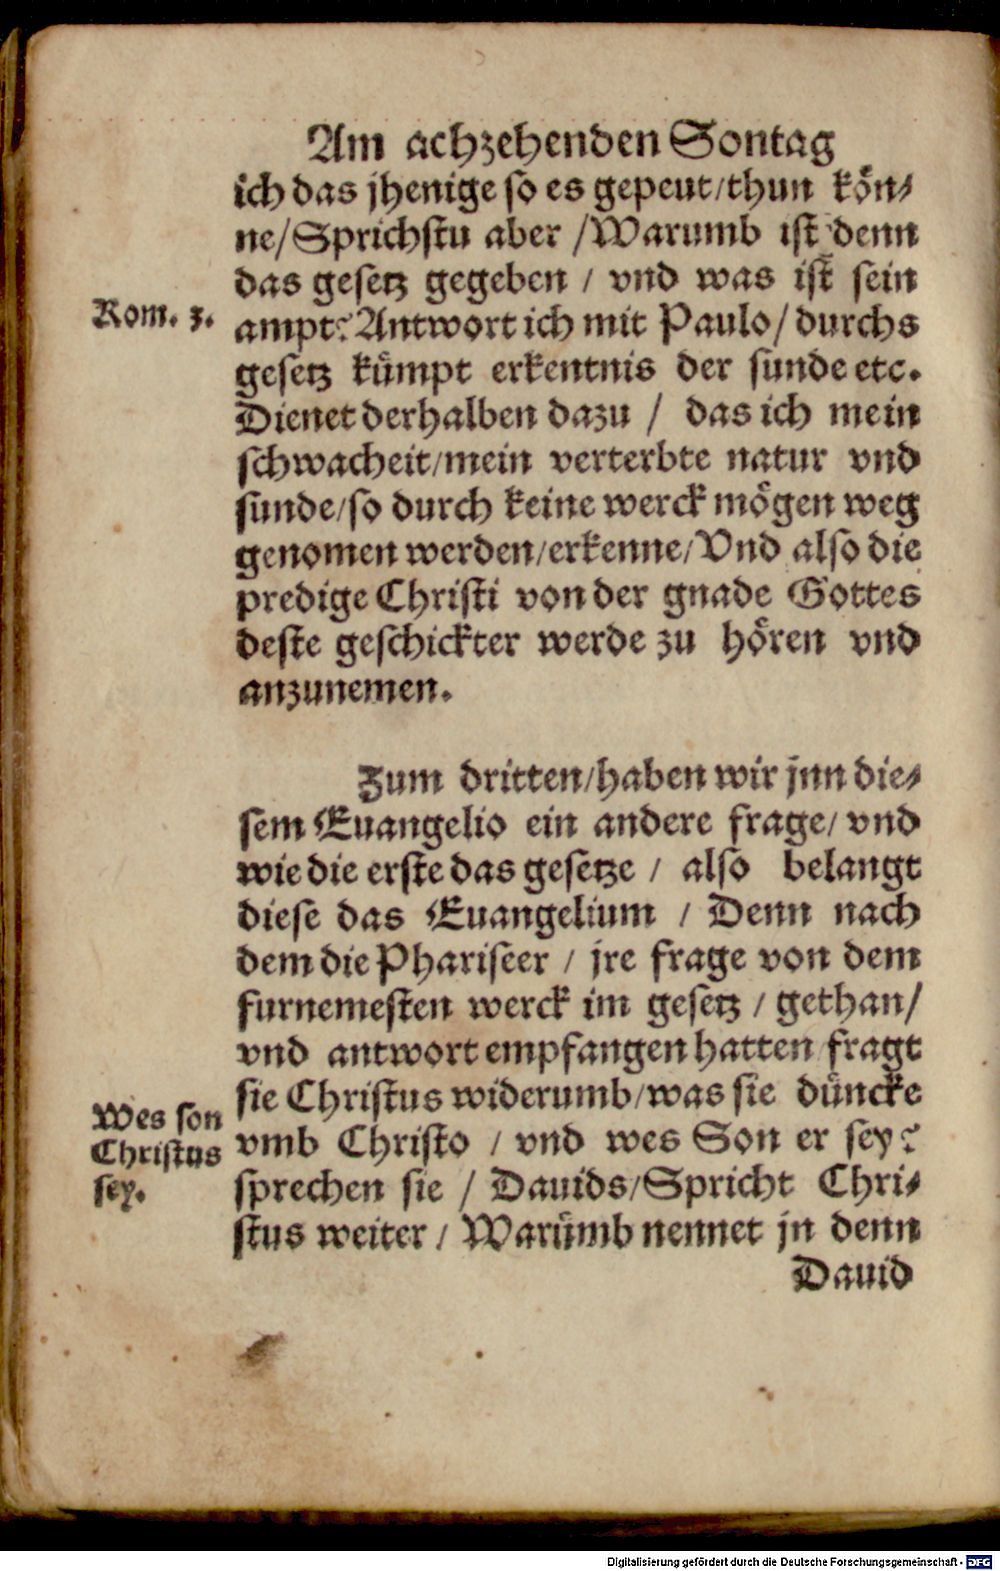 Am achzehenden Sontag
ich das jhenige so es gepeut/thun kön⸗
ne/Sprichstu aber /Warumb ist denn
das gesetz gegeben / vnd was ist sein
Rom. 3.
ampt? Antwort ich mit Paulo/ durchs
gesetz kümpt erkentnis der sunde etc.
Dienet derhalben dazu / das ich mein
schwacheit/mein verterbte natur vnd
sunde/so durch keine werck mögen weg
genomen werden/erkenne/Vnd also die
predige Christi von der gnade Gottes
deste geschickter werde zu hören vnd
anzunemen.
Zum dritten/haben wir jnn die⸗
sem Euangelio ein andere frage/ vnd
wie die erste das gesetze / also belangt
diese das Euangelium / Denn nach
dem die Phariseer / jre frage von dem
furnemesten werck im gesetz / gethan/
vnd antwort empfangen hatten fragt
sie Christus widerumb/was sie düncke
Wes son
Christus
sey.
vmb Christo / vnd wes Son er sey?
sprechen sie / Dauids/Spricht Chri⸗
stus weiter / Warümb nennet jn denn
Dauid
Digitalisierung gefördert durch die Deutsche Forschungsgemeinschaft - DFG